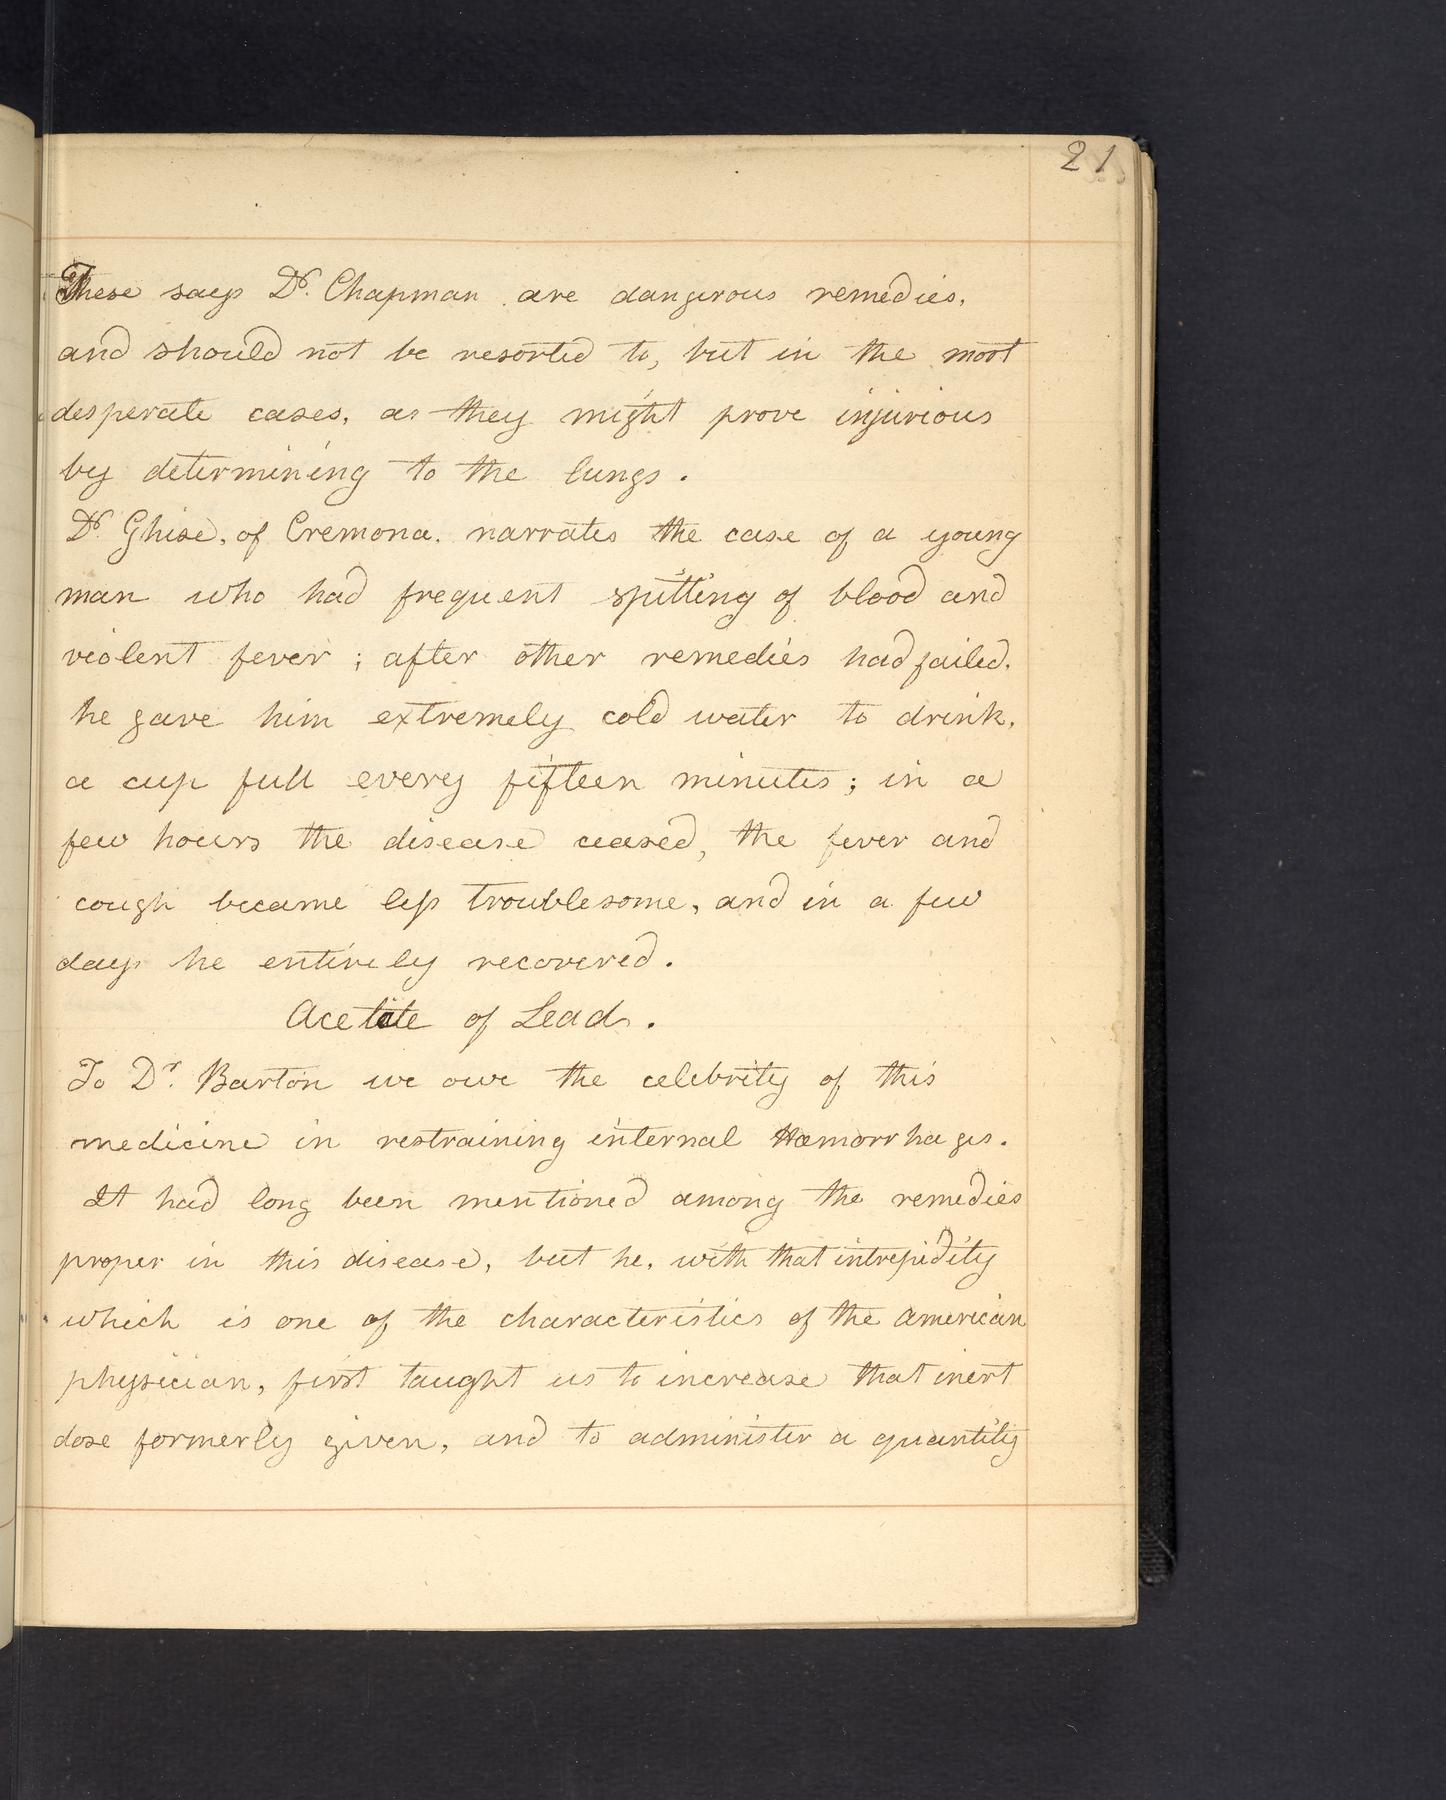 21
These says Dr. Chapman are dangerous remedies,
and should not be resorted to, but in the most
desperate cases, as they might prove injurious
by determining to the lungs.
Dr. Ghise, of Cremona, narrates the case of a young
man who had frequent spitting of blood and
violent fever; after other remedies had failed,
he gave him extremely cold water to drink,
a cup full every fifteen minutes; in a
few hours the disease ceased, the fever and
cough became less troublesome, and in a few
days he entirely recovered.
Acetate of Lead.
To Dr. Barton we owe the celebrity of this
medicine in restraining internal Hæmorrhages.
It had long been mentioned among the remedies
proper in this disease, but he, with that intrepidity
which is one of the characteristics of the American
physician, first taught us to increase that inert
dose formerly given, and to administer a quantity